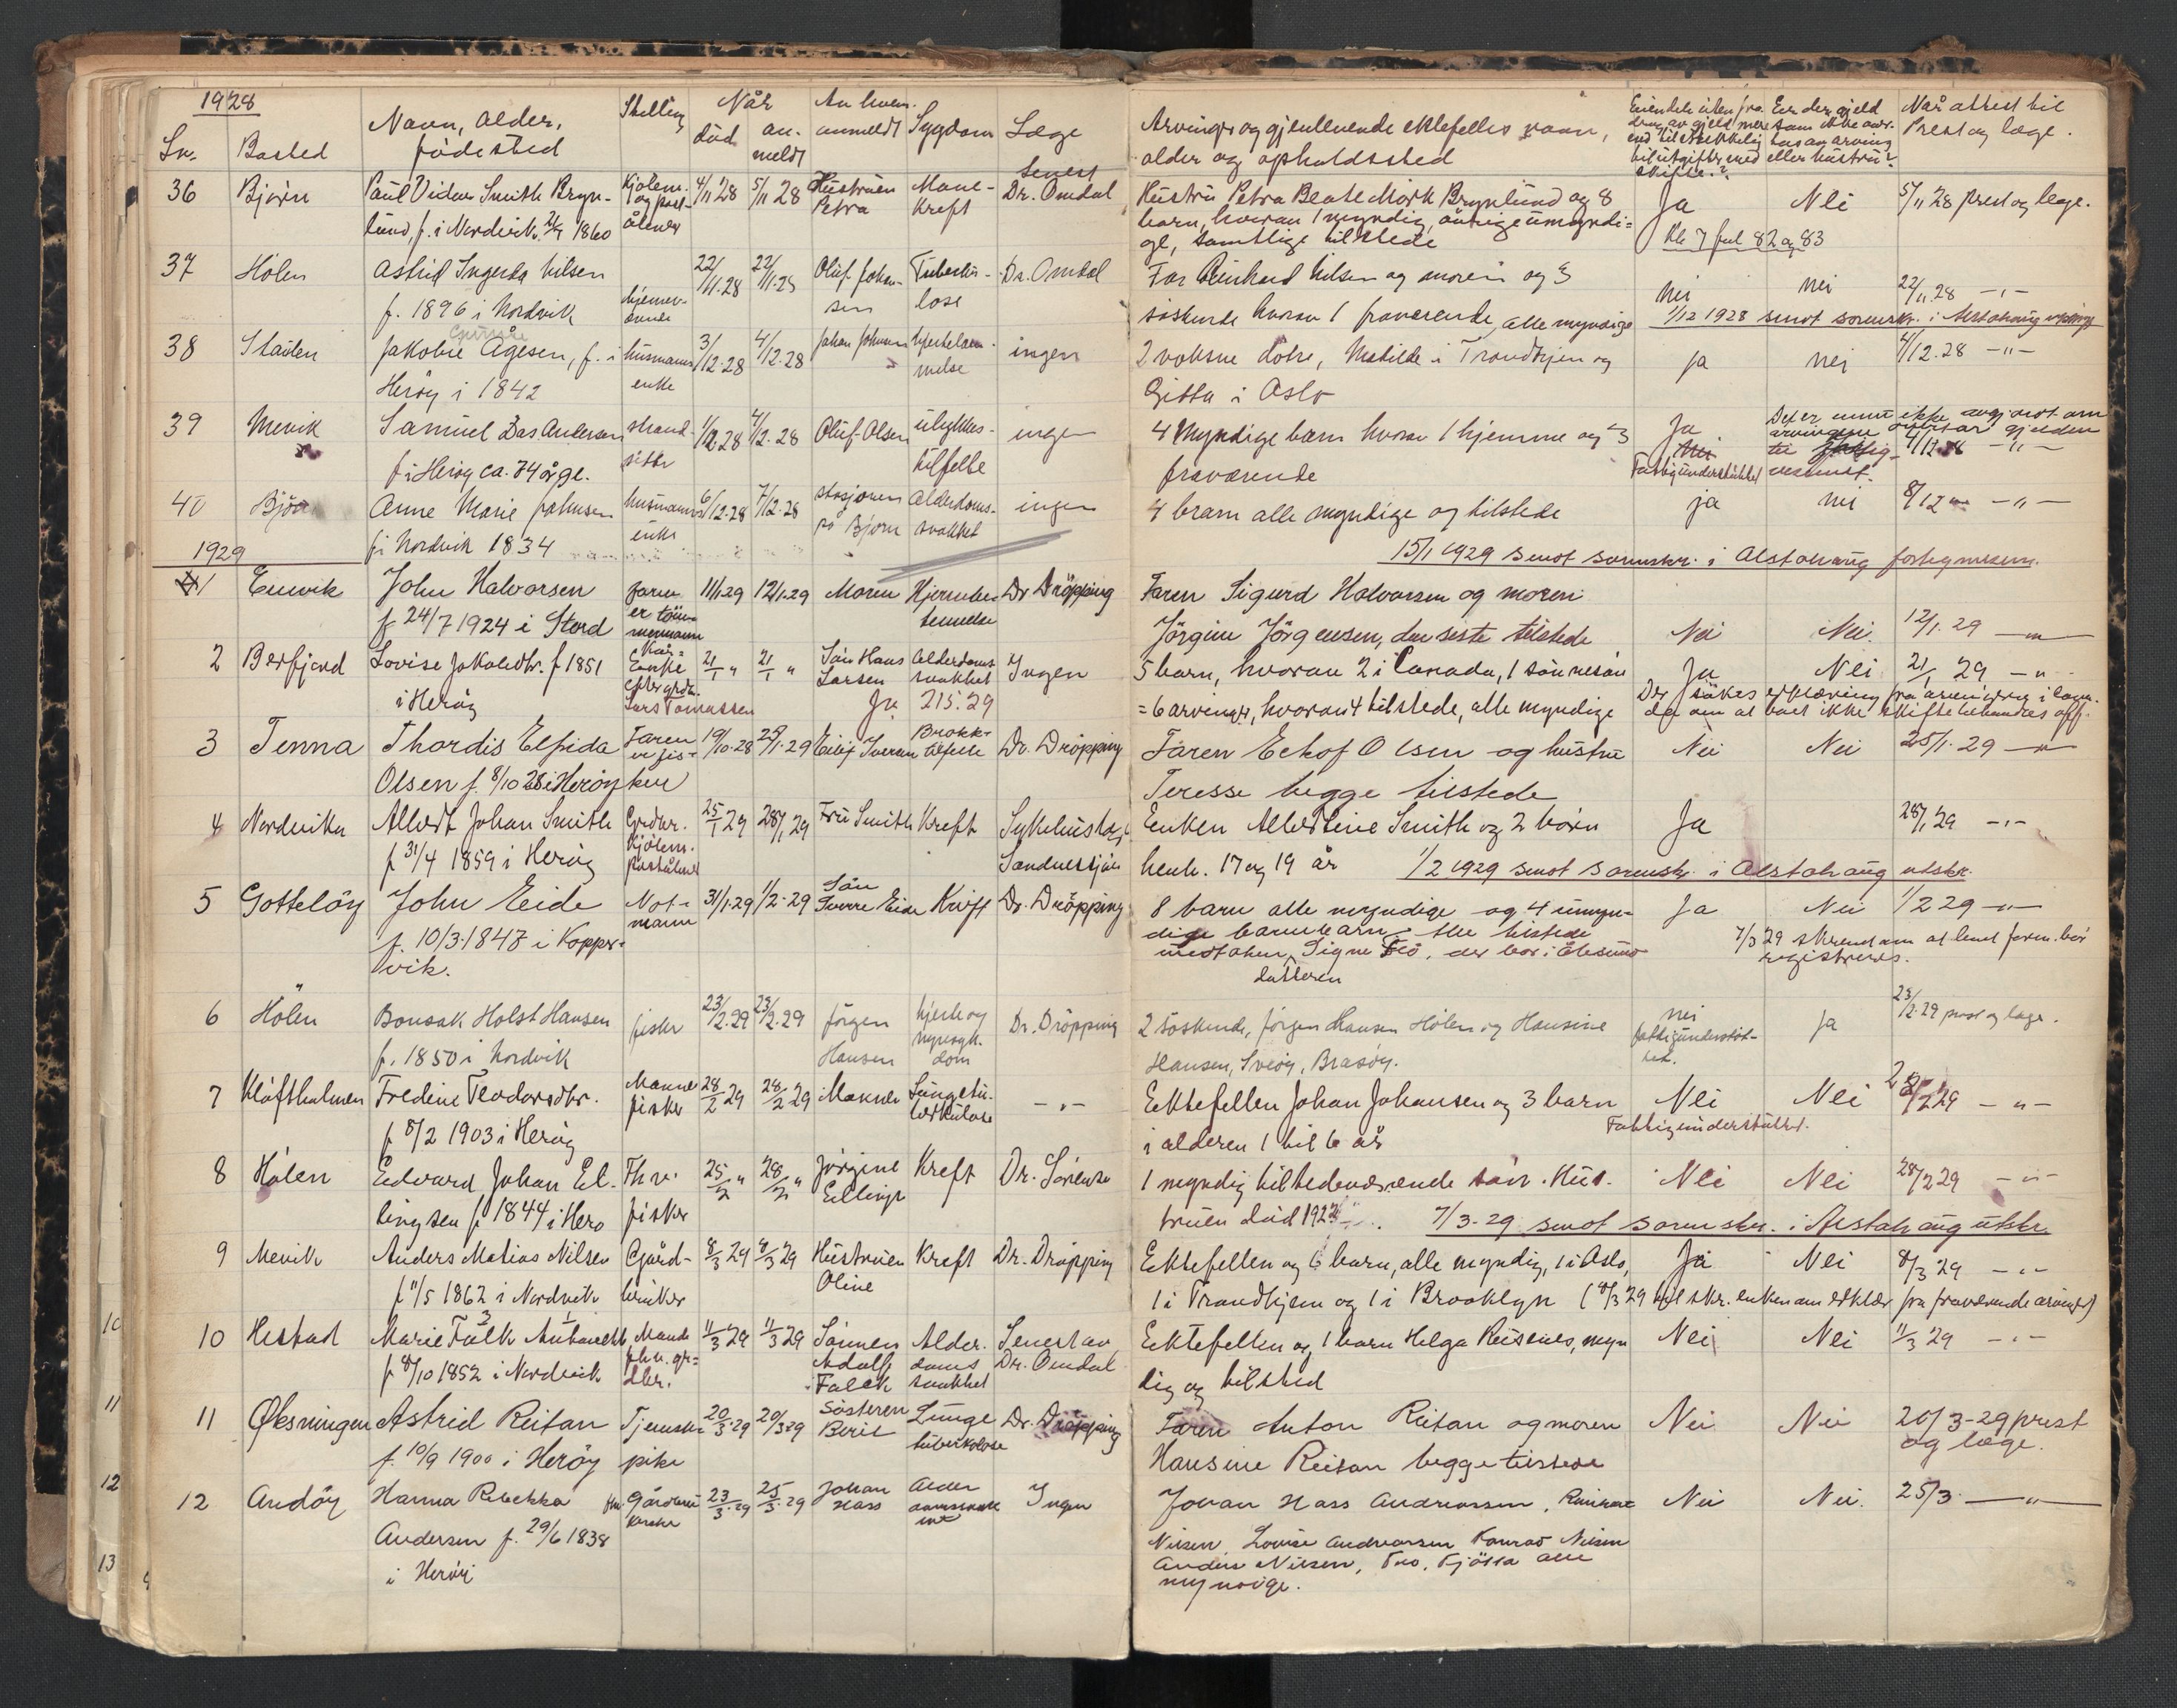 1928
Lnr. Bosted
Navn, alder, fødested
Stilling
Når
død
anmeldt
Av hvem anmeldt
Sygdom
Læge
Arvinger og gjenlevende ektefelles navn,
alder og opholdssted
Når attest til
Prest og læge.
36 Bjørn
Paul Vidar Smith Bryn-
lund, f. i Nordvik 1860
Kjølem.
og post-
åbner
4/11 28
5/11 28
Hustruen
Petra
Mave-
kreft
Senest
Dr. Omdal
Hustru Petra Beate Mörk Brynlund og 8
barn, hvorav 1 myndig, övrige umyndi=
ge, samtlige tilstede
Ja
Nei
5/11 28 prest og læge.
37 Hölen
Astrid Ingerda Nilsen
f. 1896 i Nordvik
hjemmev-
ærende
22/11.28
22/11.28
Oluf Johan-
sen
Tuberku-
lose
Dr. Omdal
Far Reinhard Nilsen og moren og 3
söskende hvorav 1 fraværende, alle myndige
nei
nei
22/11.28 -"-
1/12 1928 sendt sorenskr. i Alstahaug
38 Staulen
Jakobie Ågesen, f. i
Heröy i 1842
husmanns
enke
3/12.28
4/12.28
Johan Johansen
ingen
2 voksne dötre, Matilde i Trondhjem og
Gitta i Oslo
ja
nei
4/12.28 -"-
39 Mevik
Samuel Das Andersen
f i Heröy ca. 74 år gl.
strand-
sitter
1/12 28
4/12.28
Oluf Olsen
ulykkes-
tilfelle
ingen
4 Myndige barn hvorav 1 hjemme og 3
fraværende
Ja
Fattigunderstöttet
Det er ennu ikke avgjordt om
arvingene overtar gjelden
4/12.28 -"-
40 Bjørn
Anne Marie Johnsen
f i Nordvik 1834
husmanns
enke
6/12.28
7/12.28
stasjonen
på Bjørn
Alderdoms-
svakhet
ingen
4 barn alle myndige og tilstede
ja
nei
8/12 -"-
1929
15/1 1929 sendt sorenskr. i Alstahaug fortegnelsen.
1 Engvik
John Halvorsen
f 24/7 1924 i Stord
faren
er töm-
mermann
11/1.29
12/1.29
Moren
Hjernebe-
tennelse
Dr Dröpping
Faren Sigurd Halvorsen og moren
Jörgine Jörgensen, den siste tilstede
Nei
Nei.
12/1.29 -"-
2 Berfjord
Lovise Jakobsdtr. f 1851
i Heröy
Kår=
Enke
efter grdbr.
Lars Tomassen
21/1 "
21/1 "
Sön Hans
Larsen
Alderdoms
svakhet
Ingen
Ja 21 5.29
5 barn, hvorav 2 i Canada, 1 sönnesön
=6 arvinger, hvorav 4 tilstede, alle myndige
Ja
Nei
21/1 29 -"-
3 Tenna
Thordis Elfrida
Olsen f. 8/10 28 i Heröy
Faren
er fis-
ker
19/10.28
25/1.29
Eilif Iversen
Brokk-
tilfelle
Dr. Dröpping
Faren Eckof Olsen og hustru
Teresse begge tilstede
Nei
Nei
25/1.29 -"-
4 Nordviken
Albert Johan Smith
f 31/4 1859 i Heröy
Grdbr.
Kjölem.
Poståbner
25/1 29
28/1 29
Fru Smith
Kreft
Sykehuslæge
Sandnessjöen
Enken Albertine Smith og 2 börn
henh. 17 og 19 år
Ja
28/1 29 -"-
1/2 1929 sendt sorenskr. i Alstahaug utskr.
5 Gottelöy
John Eide
f. 10/3.1847 i Kopper-
vik.
Not-
mann
31/1.29
1/2-29
Sön
Sverre Eide
Kreft
Dr. Dröpping
8 barn alle myndige og 4 umyn-
dige barnebarn alle tilstede
undtaken Signe Flö, der bor i Ålesund
datteren
Ja
Nei
1/2 29 -"-
registreres.
6 Hölen
Bonsak Holst Hansen
f. 1850 i Nordvik
fisker
23/2.29
23/2.29
Jörgen
Hansen
hjerte og
nyresyk-
dom
Dr. Dröpping
2 söskende, Jörgen Hansen Hölen og Hansine
Hansen, Sveöy, Brasöy.
nei
fattigunderstöt-
tet.
ja
23/2.29 prest og læge.
7 Kloftholmen
Fredine Teodorsdtr.
f 8/2 1903 i Heröy
Manne
fisker
28/2 29
28/2 29
Mannen
Lungetu-
berkulose
-"-
Ektefellen Johan Johansen og 3 barn
i alderen 1 til 6 år
Nei
Fattigunderstöttet.
Nei
28/2 29 -"-
8 Hölen
Edvard Johan El-
lingsen f 1844 i Herö
Fhv.
fisker
25/2 "
28/2 "
Jörgine
Ellings
Kreft
Dr. Sörensen
1 myndig tilstedeværende sön. Hus-
truen död 192
Nei
Nei
28/2 29 -"-
7/3-29 sendt sorenskr. i Alstahaug utskr.
9 Mevik
Anders Matias Nilsen
f 11/5 1862 i Nordvik
Gård-
bruker
8/3 29
8/3 29
Hustruen
Oline
Kreft
Dr. Dröpping
Ektefellen og 6 barn, alle myndig, 1 i Oslo,
1 i Trondhjem og 1 i Brooklyn (8/3 29 tilskr. enken om erklær. fra fraværende arvinger)
Ja
Nei
8/3 29 -"-
10
10 Hestad
Marie Falk
f 8/10 1852 i Nordvik
Mande
fhv. gr=
dbr.
11/3 29
11/3 29
Sönnen
Adolf
Falck
Alder-
doms
svakhet
Senest av
Dr. Omdal
Ektefellen og 1 barn Helga Reisenes, myn
dig og tilsted
Nei
Nei
11/3 29 -"-
11
11 Øksningen
Astrid Reitan
f. 10/9 1900 i Heröy
Tjeneste
pike
20/3.29
20/3.29
Sösteren
Berit
Lunge
tuberkolose
Dr. Dröpping
Faren Anton Reitan og moren
Hansine Reitan begge tilstede
Nei
Nei
20/3-29 prest
og læge.
12
12 Andöy
Hanna Rebekka
Andersen f. 29/6 1838
i Heröy
23/3.29
25/3.29
Johan
Hass
Ingen
Johan Hass Andreassen,
Nilsen, Lovise Andreassen Konrad Nilsen
Anders Nilsen, Tro, Tjötta alle
myndige.
Nei
Nei.
25/3 -"-
13